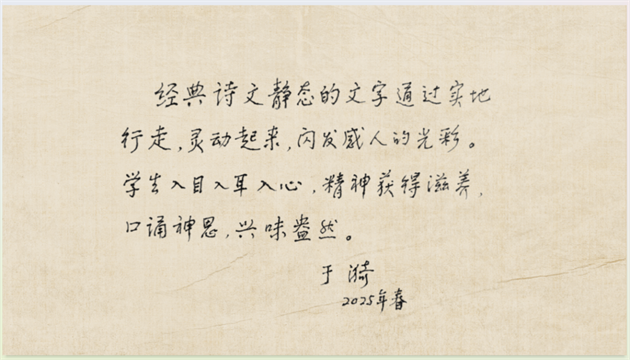 经典诗文静态的文字通过实地
行走,灵动起来,闪发感人的光彩。
学生入目入耳入心,精神获得滋养,
口诵神思,兴味盎然。
于漪
2025年春